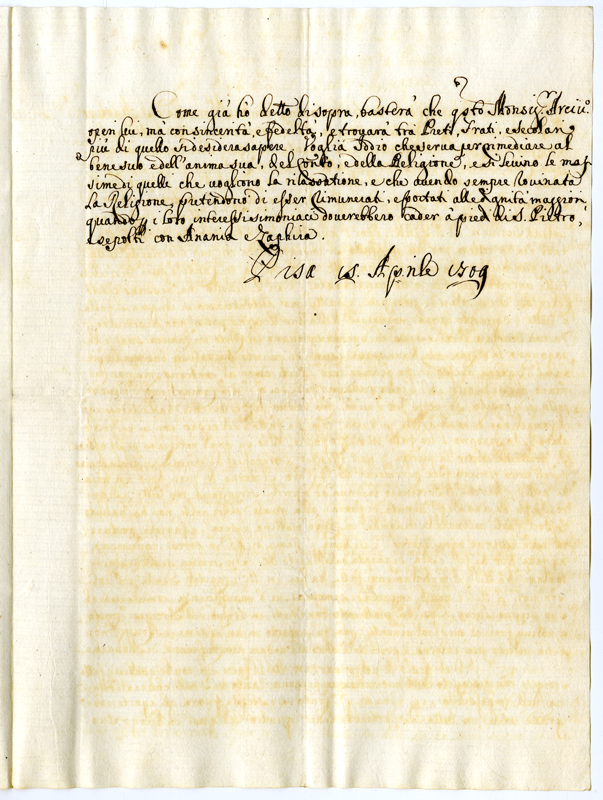 Come già hò detto di sopra, basterà che qsto Monsigr. Arciuo.
operi lui, ma con sincerità, e fedeltà, e trouarà tra Preti, Frati, e secolari
più di quello si desidera sapere. Voglia Iddio che serua per rimediare al
bene suo e dell'anima sua, del, e della Religione, e si leuino le mas
sime di quelli che uogliono la rilassatione, e che auendo sempre rouinata
la Religione, pretendono di esser rimunerati, e portati alle dignità maggiori
quando p i loro interessi simoniaci douerebbero cader a piedi di S. Pietro,
e sepolti con Anania e Zaphira.
Pisa 15. Aprile 1709